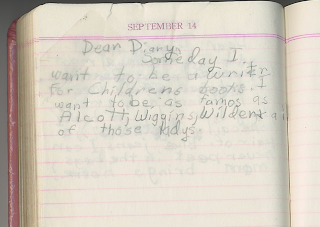 SEPTEMBER 14
Dear Diary,
Someday I
want to be a writer
for Childrens books. I
want to be as famos as
Alcott, Wiggins, Wilder
of those ladys.